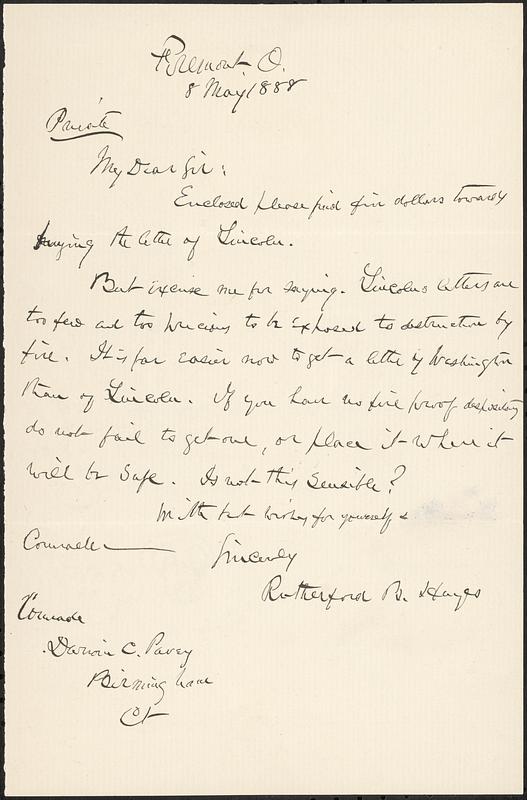 Fremont O.
8 May 1888
Private
My Dear Sir:
Enclosed please find five dollars towards
buying the letter of Lincoln.
But excuse me for saying. Lincoln's letters are
too few and too precious to be exposed to destruction by
fire. It is far easier now to get a letter of Washington
than of Lincoln. If you have no fire proof depository
do not fail to get one, or place it where it
will be safe. Is not this sensible?
With best wishes for yourself &
Comrades
Sincerely
Rutherford B. Hayes
Comrade
Darwin C. Pavey
Birmingham
Ct